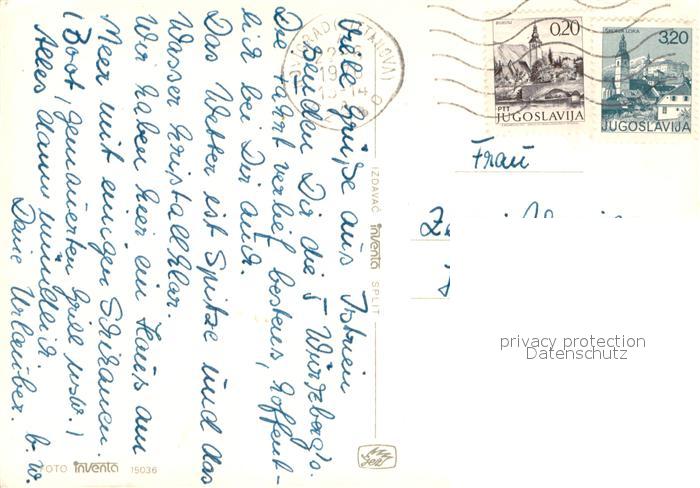 Viele Grüße aus Istrien
senden Dir die 5 Würzberg's.
Die Fahrt verlief bestens, hoffent-
lich bei Dir auch.
Das Wetter ist Spitze und das
Wasser kristallklar.
Wir haben hier ein Haus am
Meer mit einigen Schikanen.
(Boot, gemauerten Grill usw.)
Alles dann mündlich
Deine Urlauber. b.w.
FOTO inventa 15036
IZDAVAČ inventa SPLIT
0,20
PTT
JUGOSLAVIJA
ŠKOFJA LOKA
3,20
JUGOSLAVIJA
Frau
privacy protection
Datenschutz